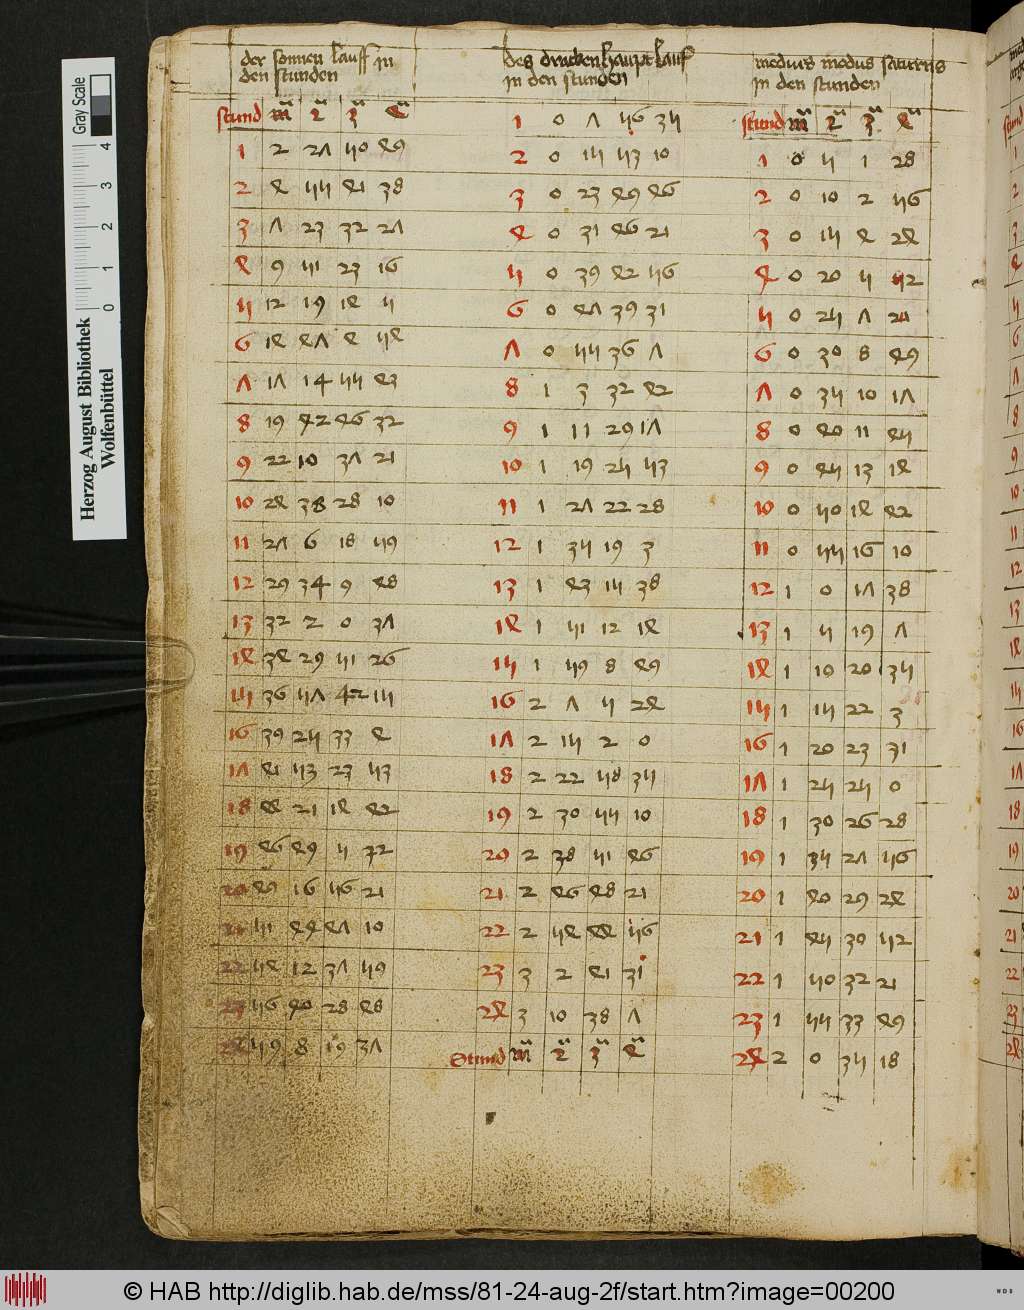 der sonnen lauff in
den stunden
stund m̃ 2 3 4
1 2 27 50 49
2 4 55 41 38
3 7 23 32 27
4 9 51 23 16
5 12 19 14 5
6 14 47 4 54
7 17 14 55 43
8 19 42 46 32
9 22 10 37 21
10 24 38 28 10
11 27 6 18 59
12 29 34 9 48
13 32 2 0 37
14 34 29 51 26
15 36 57 42 15
16 39 25 33 4
17 41 53 23 53
18 44 21 14 42
19 46 49 5 32
20 49 16 56 21
21 51 44 47 10
22 54 12 37 59
23 56 40 28 48
24 59 8 19 37
des dracken haupt lauf
in den stunden
1 0 7 56 35
2 0 15 53 10
3 0 23 49 46
4 0 31 46 21
5 0 39 42 56
6 0 47 39 31
7 0 55 36 7
8 1 3 32 42
9 1 11 29 17
10 1 19 25 53
11 1 27 22 28
12 1 35 19 3
13 1 43 15 38
14 1 51 12 14
15 1 59 8 49
16 2 7 5 24
17 2 15 2 0
18 2 22 58 35
19 2 30 55 10
20 2 38 51 46
21 2 46 48 21
22 2 54 44 56
23 3 2 41 31
24 3 10 38 7
Stund m̃ 2 3 4
medius modus saturnis
in den stunden
stund m̃ 2 3 4
1 0 5 1 28
2 0 10 2 56
3 0 15 4 24
4 0 20 5 52
5 0 25 7 21
6 0 30 8 49
7 0 35 10 17
8 0 40 11 45
9 0 45 13 14
10 0 50 14 42
11 0 55 16 10
12 1 0 17 38
13 1 5 19 7
14 1 10 20 35
15 1 15 22 3
16 1 20 23 31
17 1 25 25 0
18 1 30 26 28
19 1 35 27 56
20 1 40 29 24
21 1 45 30 52
22 1 50 32 21
23 1 55 33 49
24 2 0 35 18
stund
1
2
3
4
5
6
7
8
9
10
11
12
13
14
15
16
17
18
19
20
21
22
23
24
Herzog August Bibliothek
Wolfenbüttel
0 1 2 3 4
Gray Scale
© HAB http://diglib.hab.de/mss/81-24-aug-2f/start.htm?image=00200